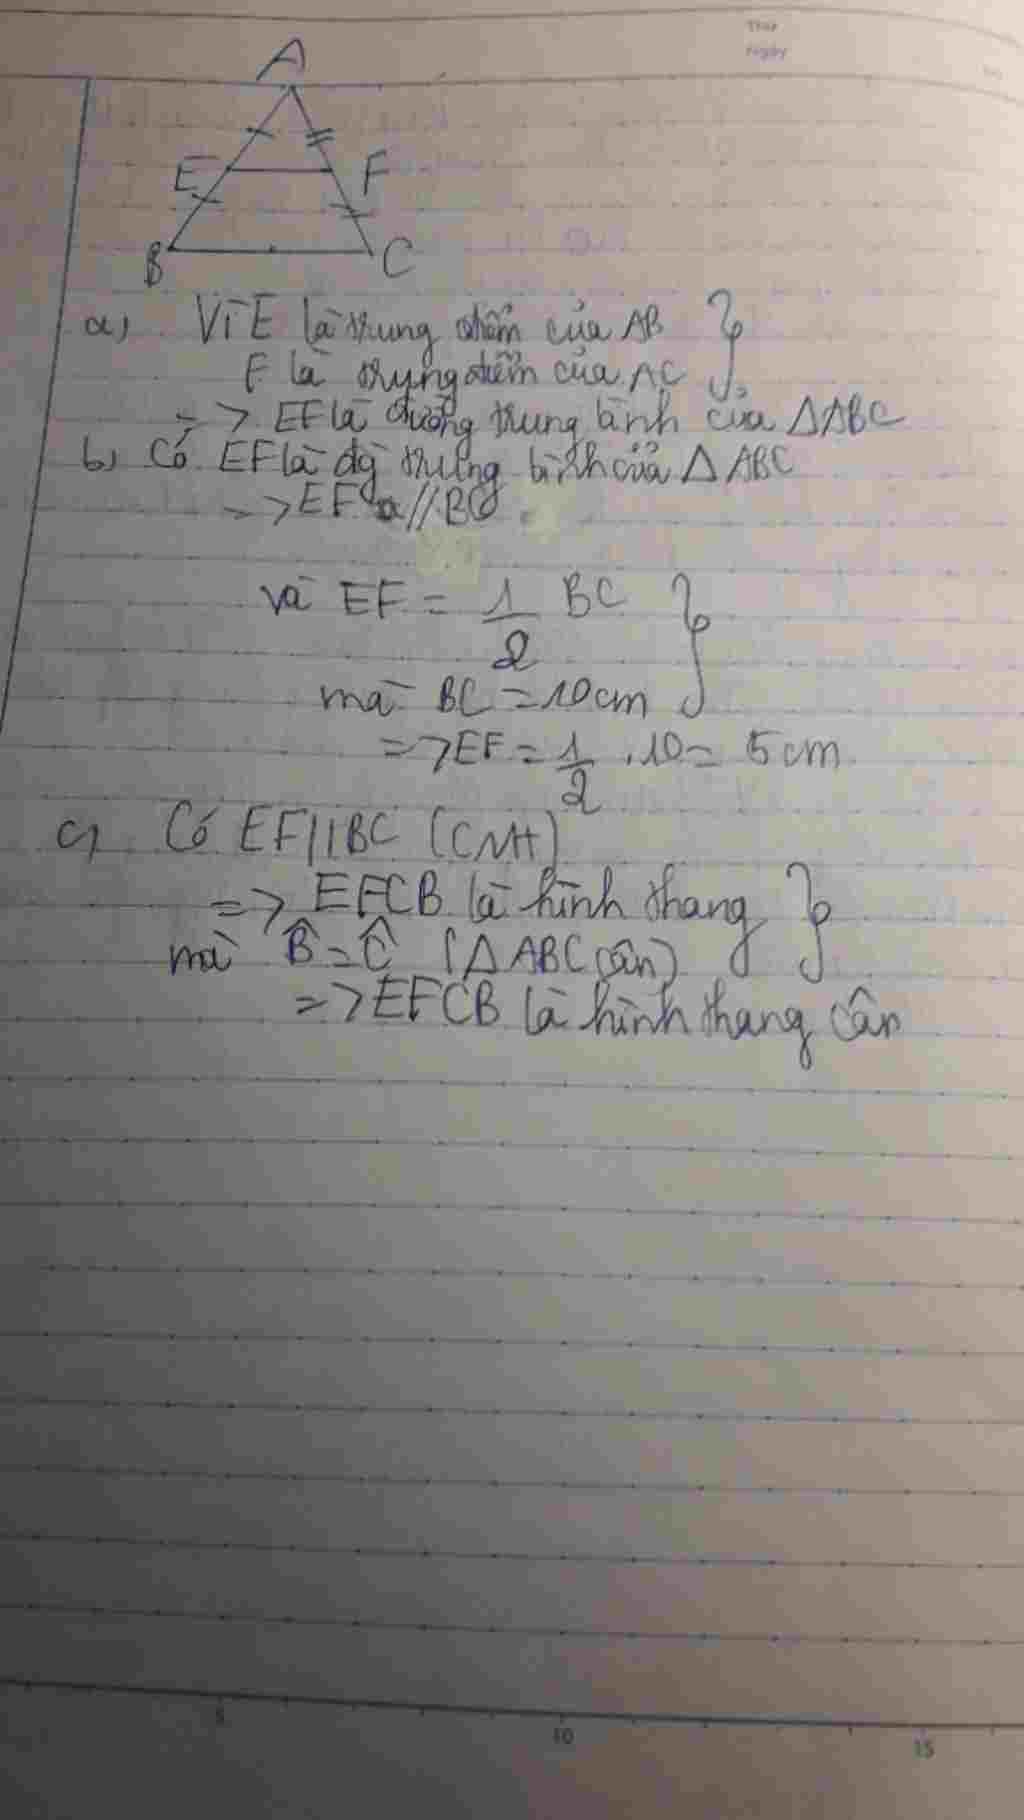 Thứ
Ngày
A
E F
B C
a) Vì E là trung điểm của AB
F là trung điểm của AC
=> EF là đường trung bình của △ABC
b) Có EF là đg trung bình của △ABC
=> EF // BC
và EF = 1/2 BC
mà BC = 10cm
=> EF = 1/2 . 10 = 5cm
c) Có EF // BC (CMt)
=> EFCB là hình thang
mà B̂ = Ĉ (△ABC cân)
=> EFCB là hình thang cân
5 10 15